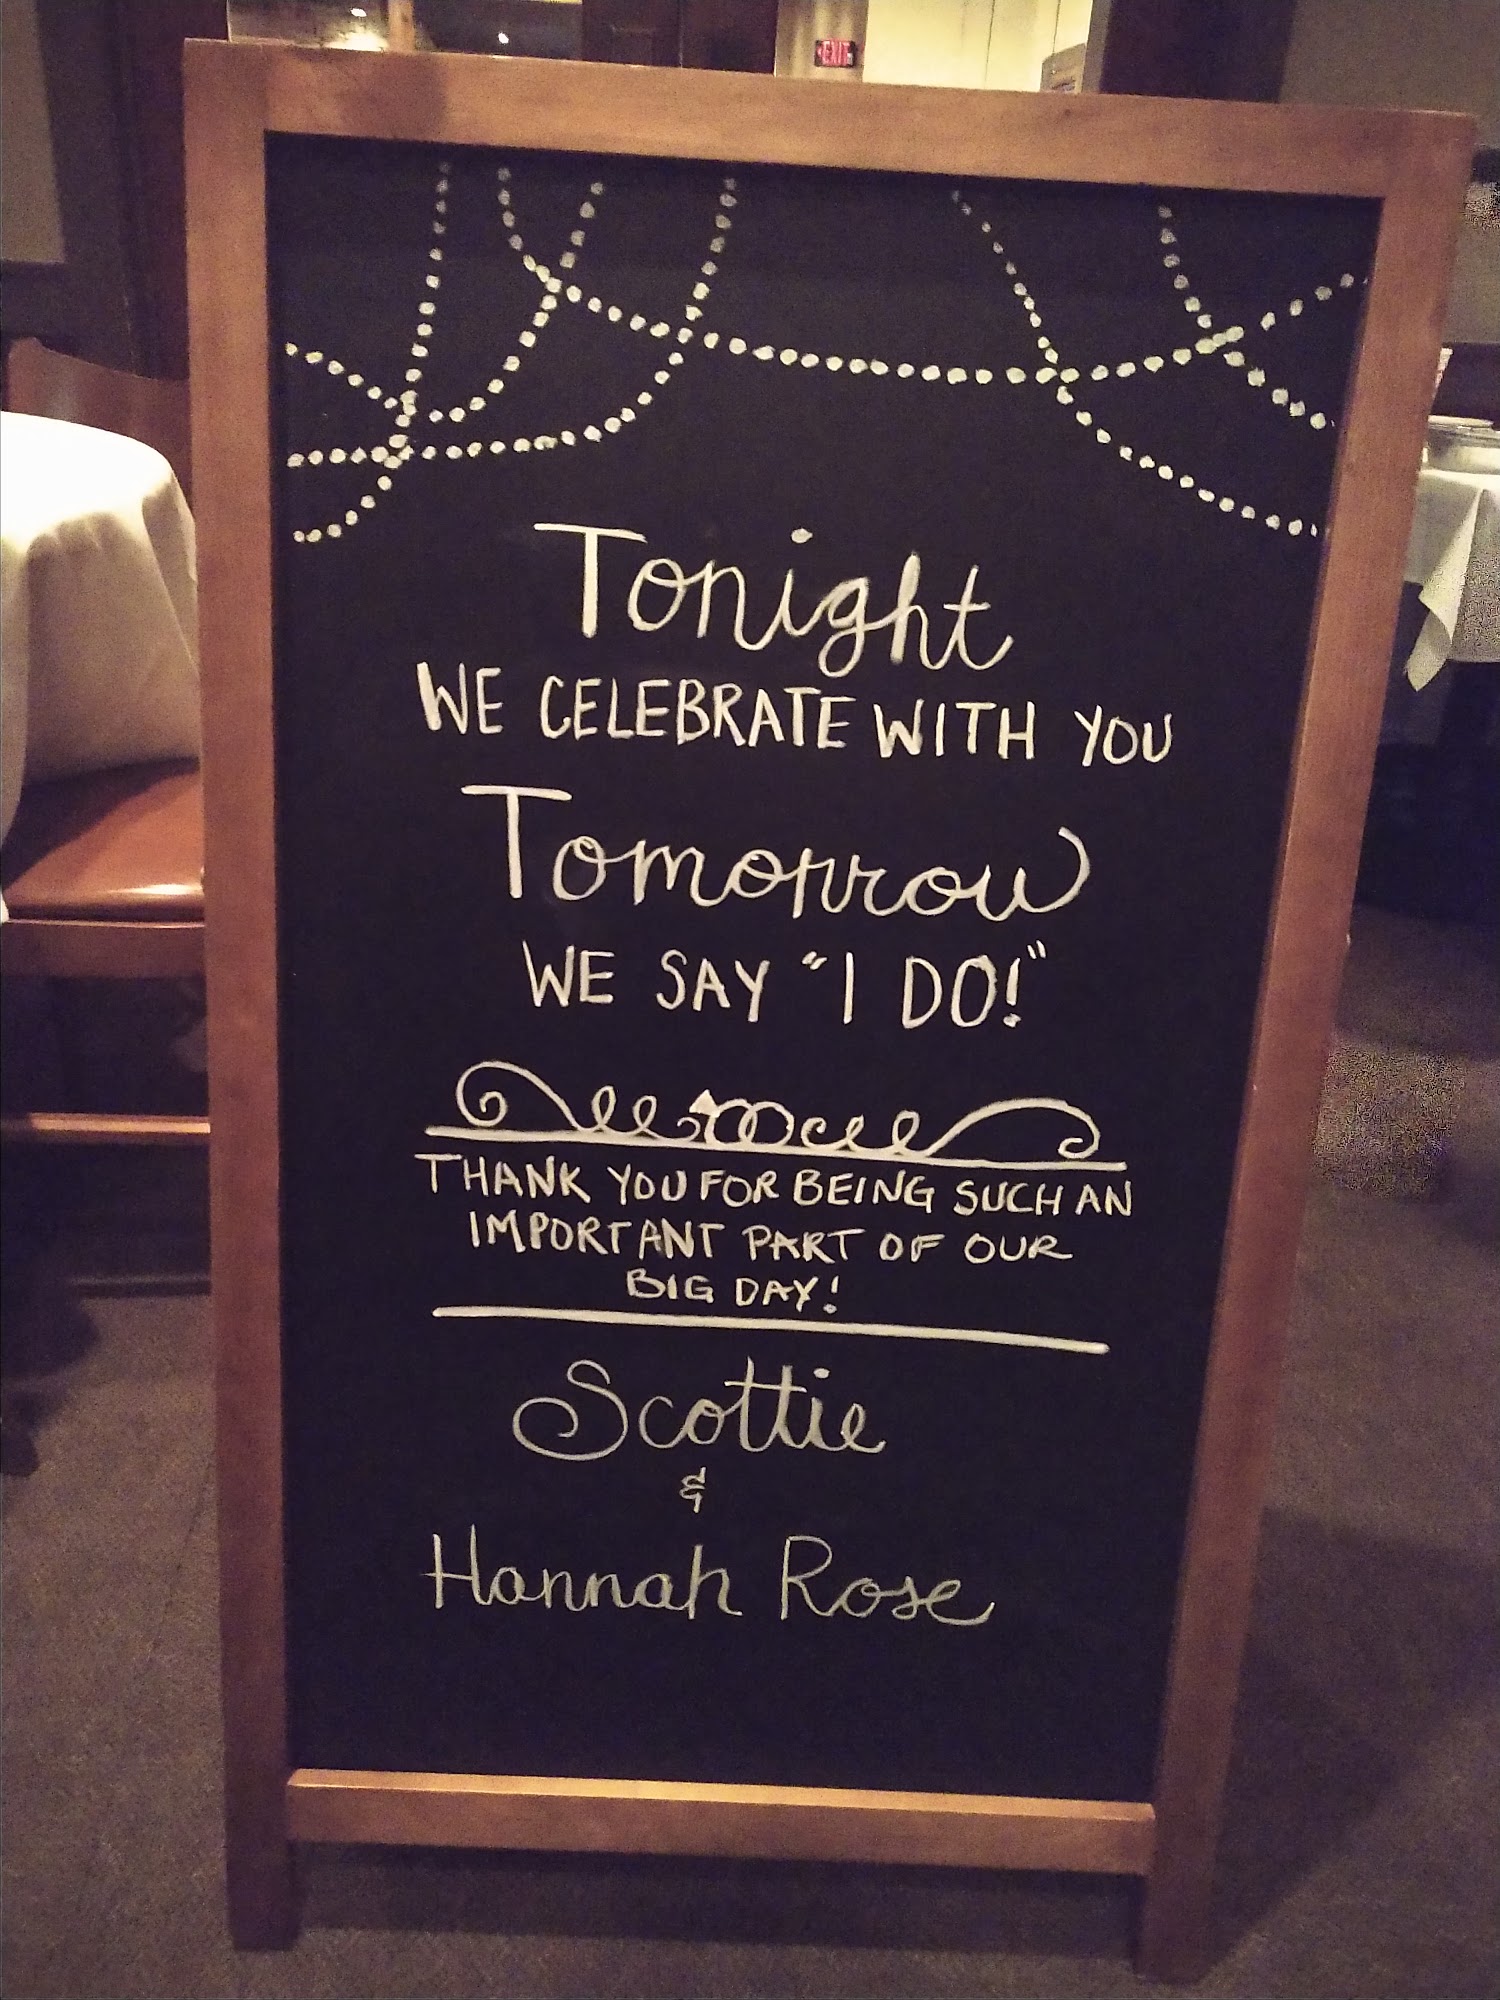 EXIT
Tonight
WE CELEBRATE WITH YOU
Tomorrow
WE SAY "I DO!"
THANK YOU FOR BEING SUCH AN
IMPORTANT PART OF OUR
BIG DAY!
Scottie
&
Hannah Rose